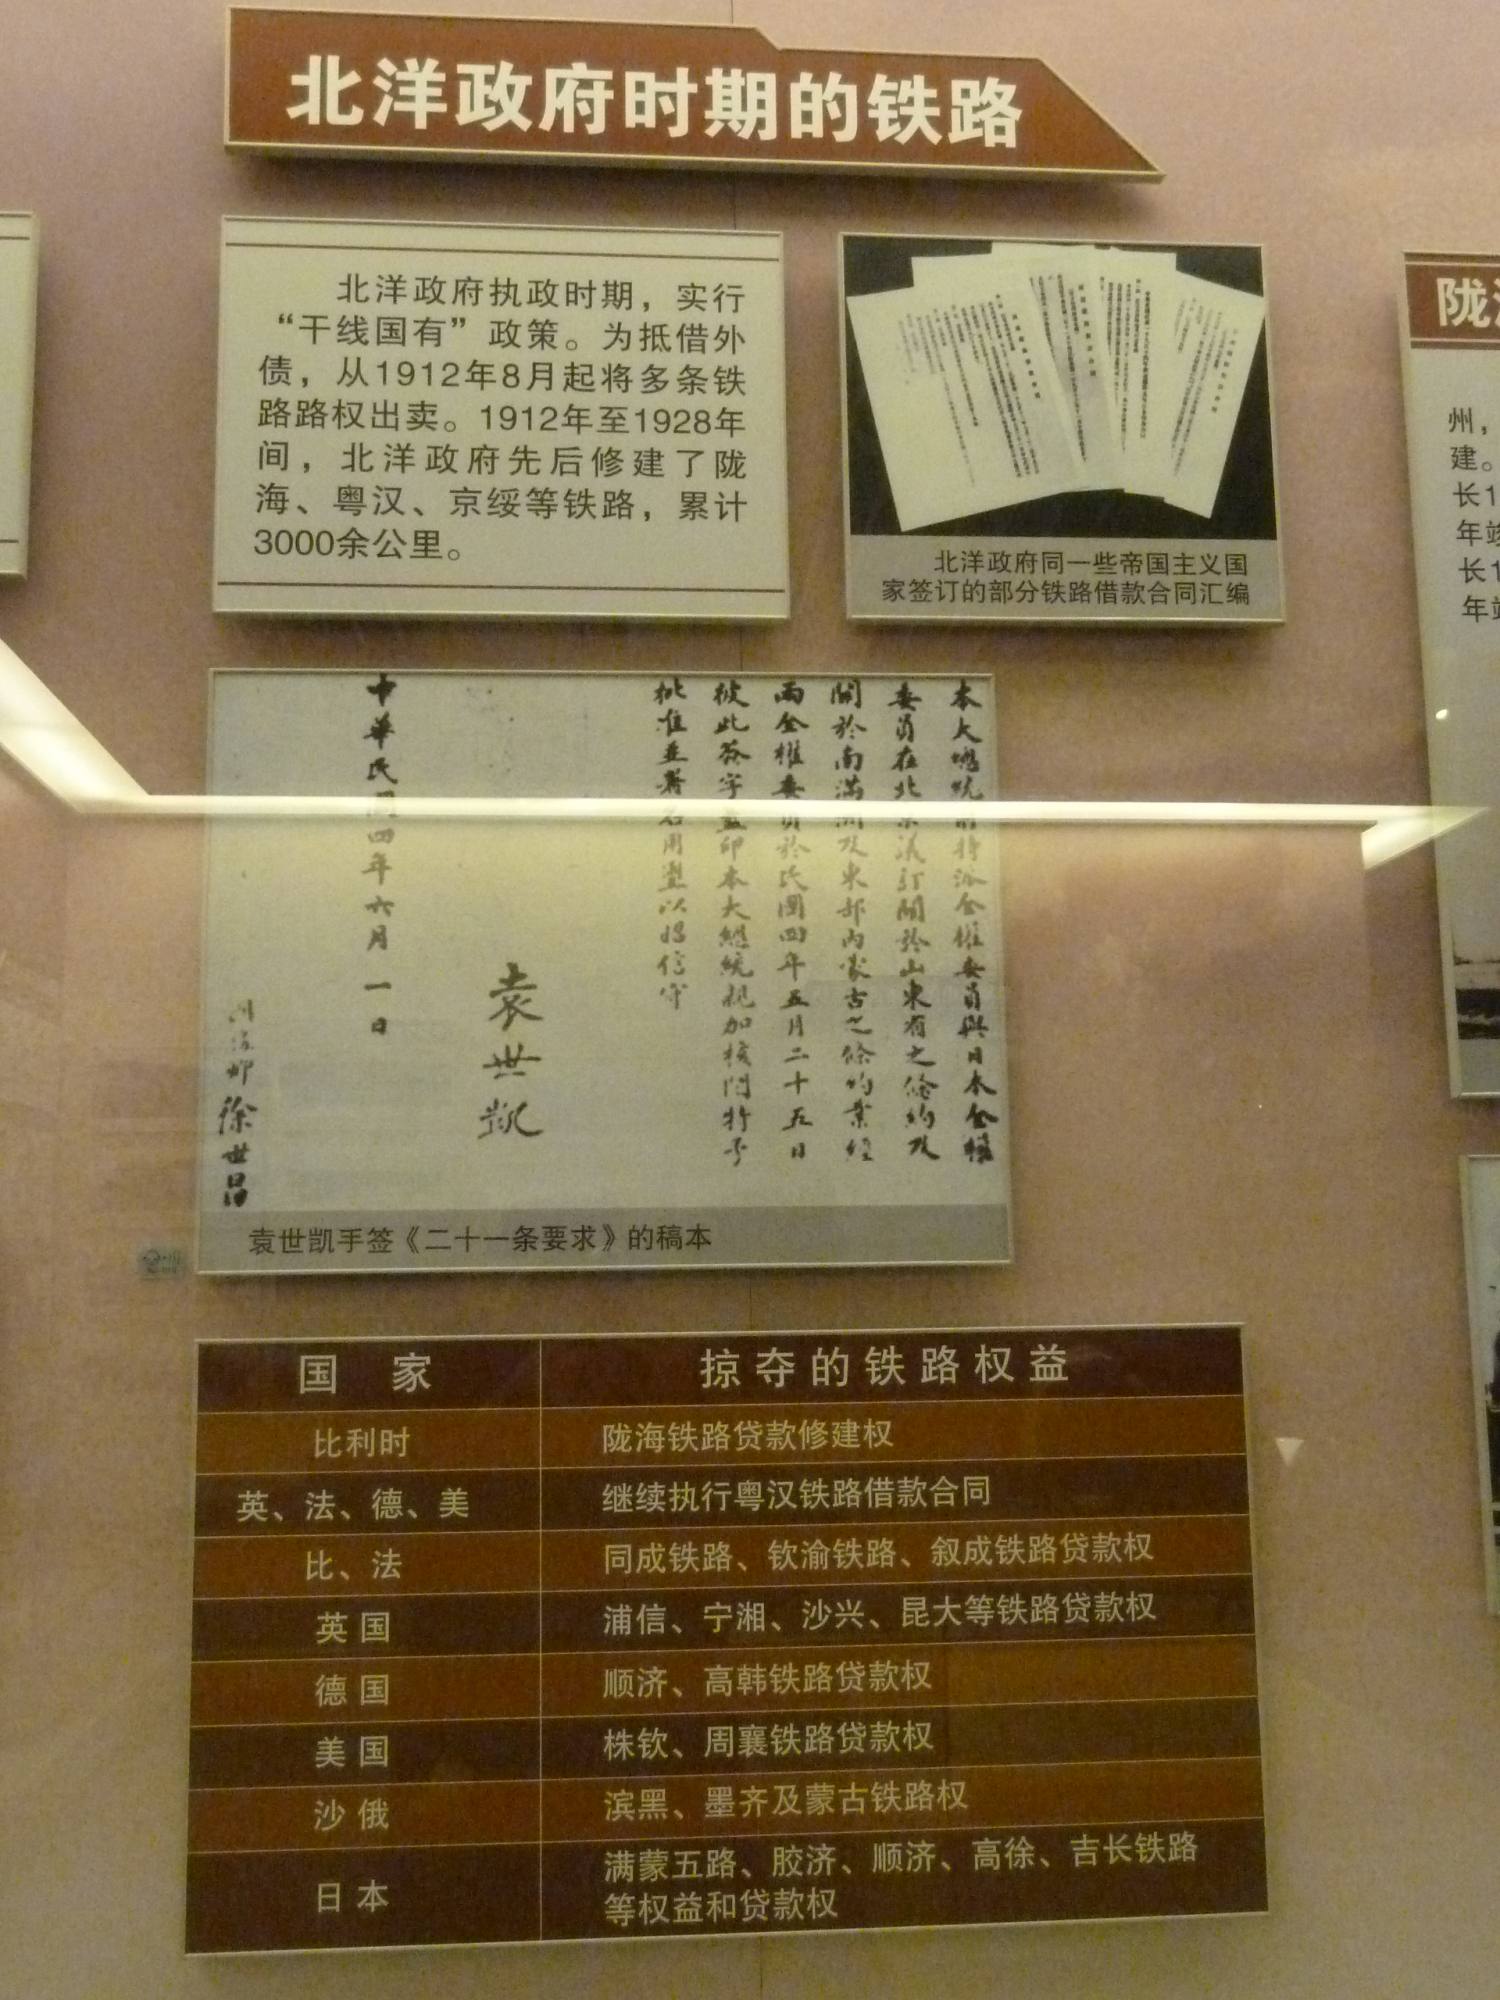 北洋政府时期的铁路
北洋政府执政时期，实行
“干线国有”政策。为抵借外
债，从1912年8月起将多条铁
路路权出卖。1912年至1928年
间，北洋政府先后修建了陇
海、粤汉、京绥等铁路，累计
3000余公里。
北洋政府同一些帝国主义国
家签订的部分铁路借款合同汇编
陇
州，
建。
长1
年竣
长1
年竣
本大總統前特派全權委員與日本全權
委員在北京議訂關於山東省之條約及
關於南滿洲及東部內蒙古之條約業經
兩全權委員於民國四年五月二十五日
彼此簽字蓋印本大總統親加核閱特予
批准並署名用璽以昭信守
袁世凯
中華民國四年六月一日
徐世昌
袁世凯手签《二十一条要求》的稿本
国 家 掠夺的铁路权益
比利时 陇海铁路贷款修建权
英、法、德、美 继续执行粤汉铁路借款合同
比、法 同成铁路、钦渝铁路、叙成铁路贷款权
英国 浦信、宁湘、沙兴、昆大等铁路贷款权
德国 顺济、高韩铁路贷款权
美国 株钦、周襄铁路贷款权
沙俄 滨黑、墨齐及蒙古铁路权
日本 满蒙五路、胶济、顺济、高徐、吉长铁路
等权益和贷款权